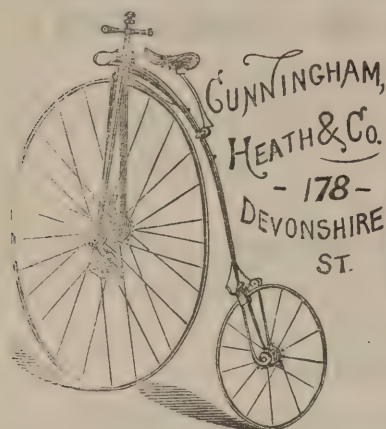 CUNNINGHAM,
HEATH & CO.
- 178 -
DEVONSHIRE
ST.